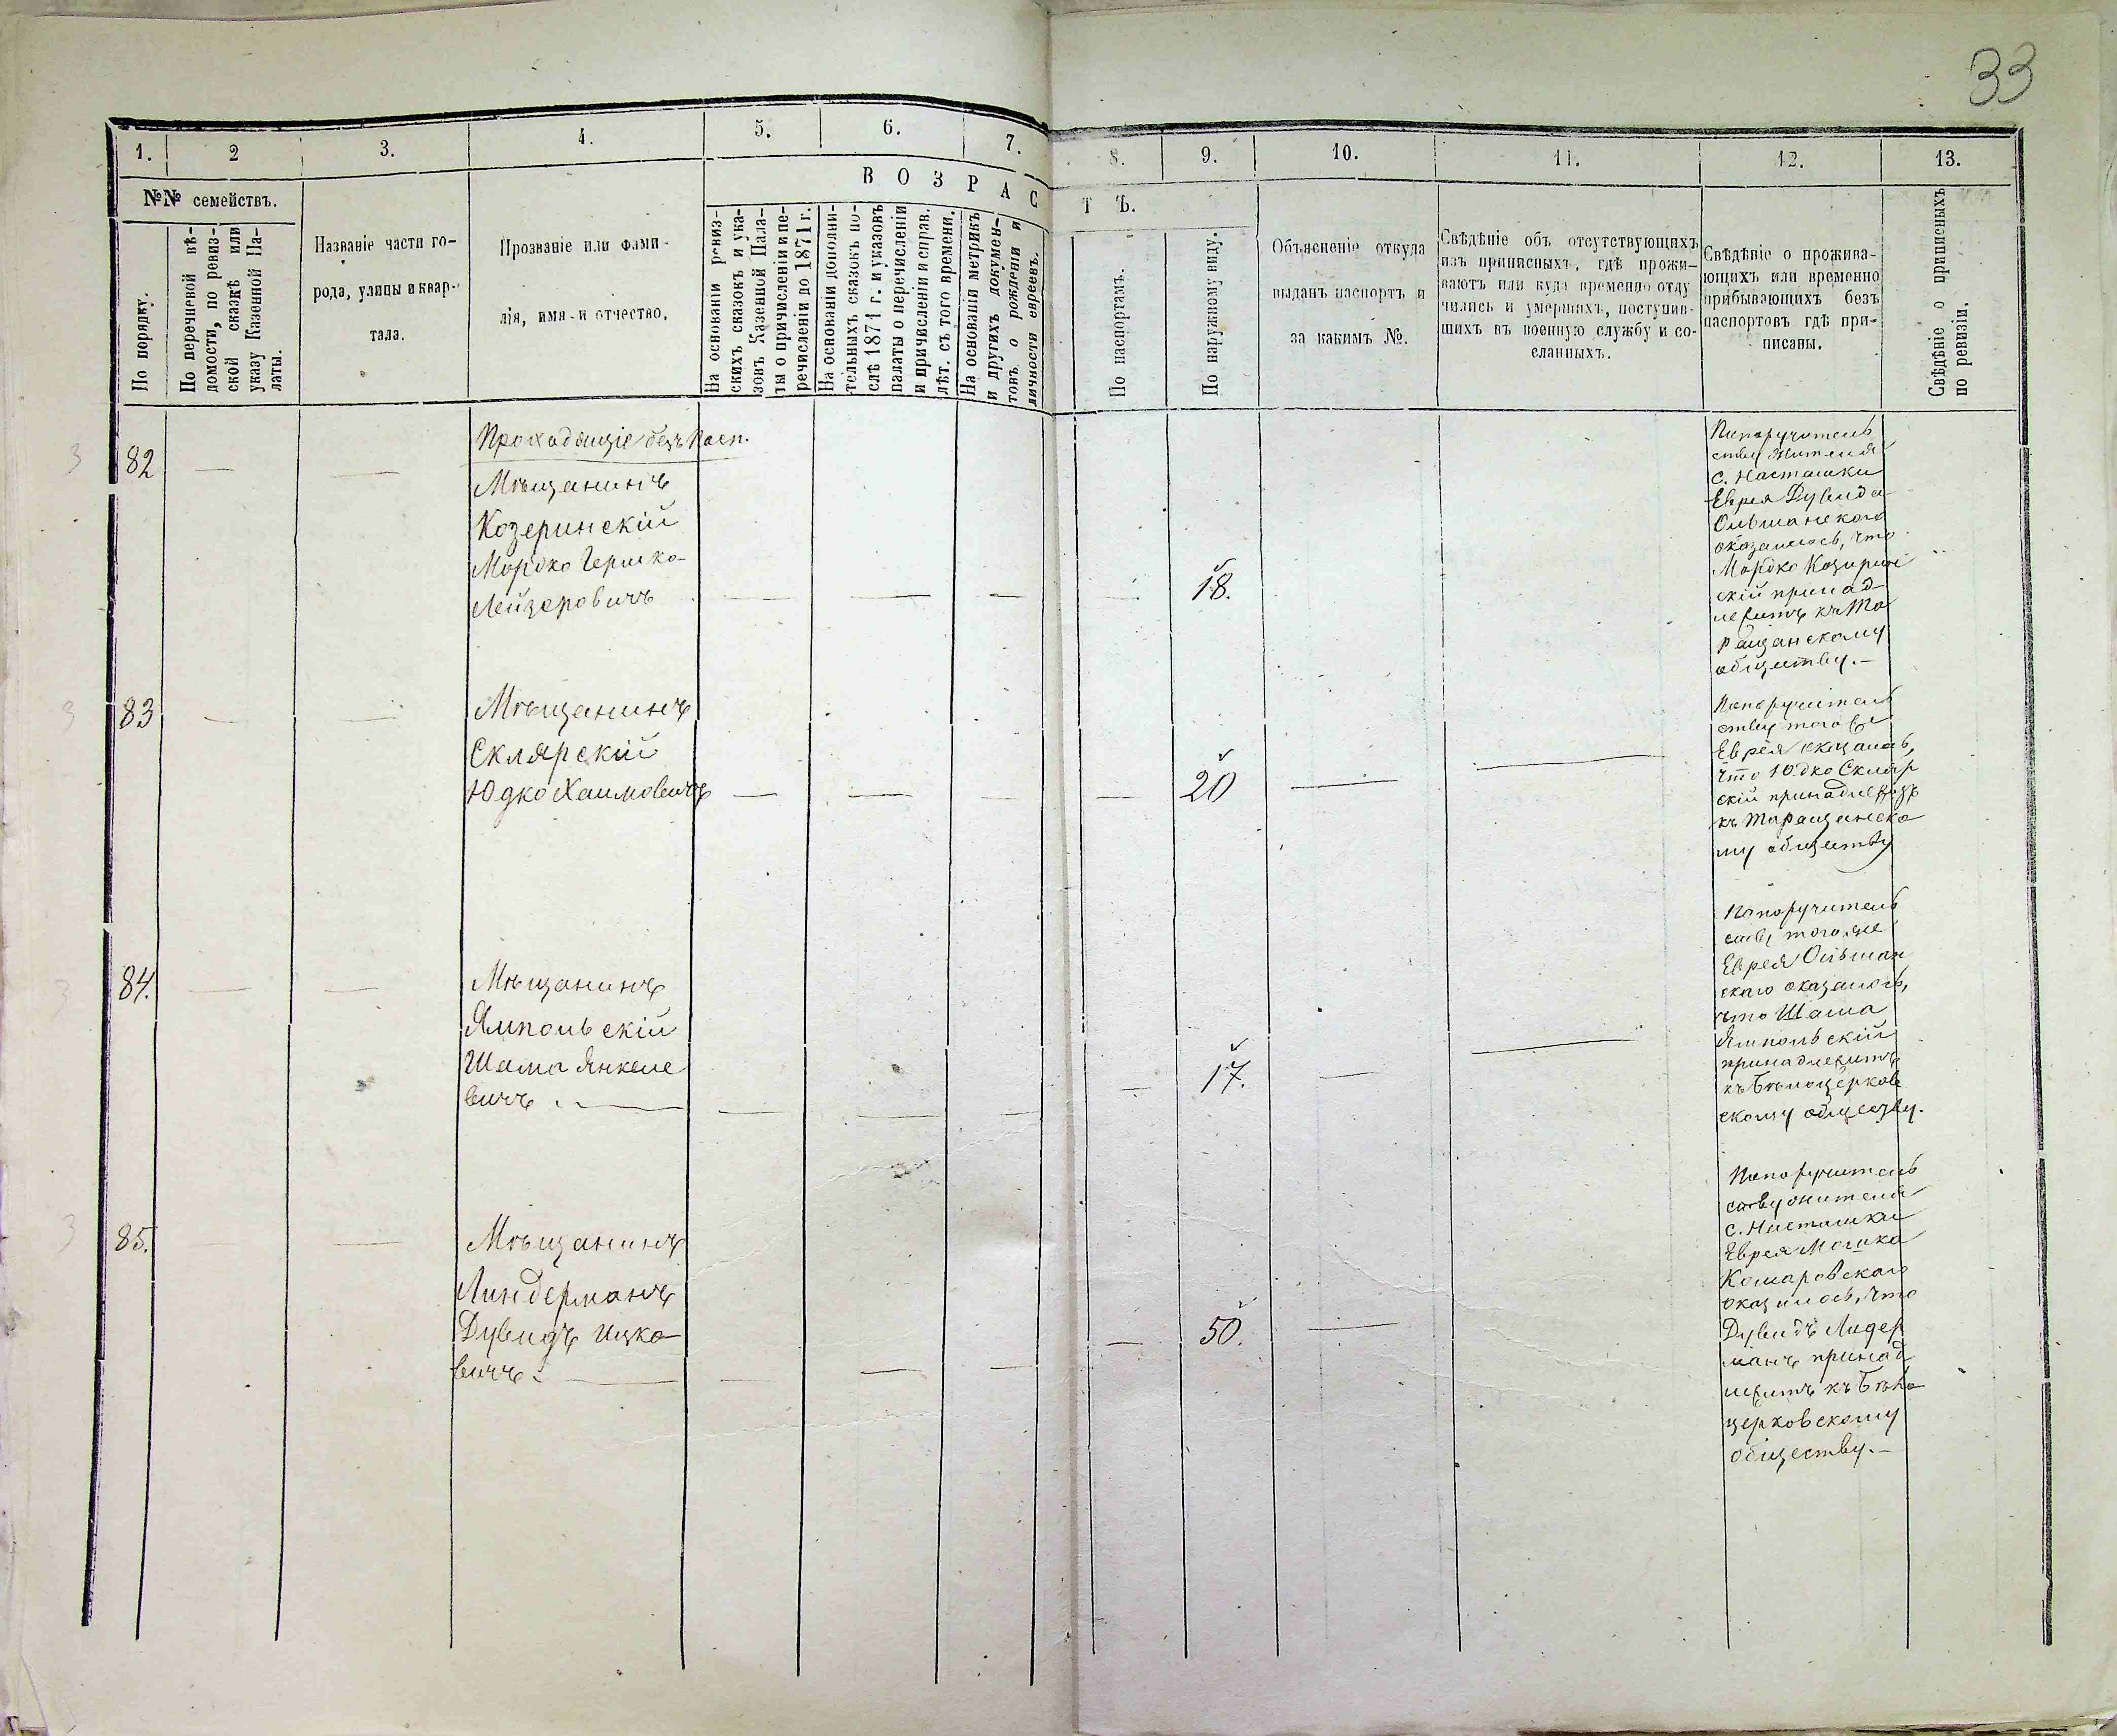 33
1. 2 3. 4. 5. 6. 7. 8. 9. 10. 11. 12. 13.
№№ семействъ.
По порядку.
По перечневой вѣ-
домости, по ревиз-
ской сказкѣ или
указу Казенной Па-
латы.
Названіе части го-
рода, улицы и квар-
тала.
Прозваніе или фами-
лія, имя и отчество.
ВОЗРАСТЪ.
На основаніи ревиз-
скихъ сказокъ и ука-
зовъ Казенной Пала-
ты о причисленіи и пе-
речисленіи до 1871 г.
На основаніи дополни-
тельныхъ сказокъ по-
слѣ 1871 г. и указовъ
палаты о перечисленіи
и причисленіи и справ.
лѣт. съ того времени.
На основаніи метрикъ
и другихъ докумен-
товъ о рожденіи и
личности евреевъ.
По паспортамъ.
По наружному виду.
Объясненіе откуда
выданъ паспортъ и
за какимъ №.
Свѣдѣніе объ отсутствующихъ
изъ приписныхъ, гдѣ прожи-
ваютъ или куда временно отлу
чились и умершихъ, поступив-
шихъ въ военную службу и со-
сланныхъ.
Свѣдѣніе о прожива-
ющихъ или временно
прибывающихъ безъ
паспортовъ гдѣ при-
писаны.
Свѣдѣніе о приписныхъ
по ревизіи.
3 82 — —
Проходящіе безъ Пасп.
Мѣщанинъ
Козеринскій
Мордко Гершко-
Лейзеровичъ — — — — 18.
По поручитель
ству жителя
с. Насташки
Еврея Дувида
Ольшанского
оказалось, что
Мордко Козерин
скій принад-
лежитъ къ Та
ращанскому
обществу.—
3 83 — —
Мѣщанинъ
Склярскій
Юдко Хаимовичъ — — — — 20 — —
По поручитель
ству того же
Еврея оказалось,
что Юдко Скляр
скій принадлежитъ
къ Таращанско
му обществу
3 84. — —
Мѣщанинъ
Ямпольскій
Шама Янкеле
вичъ. — — — — — 17. — —
По поручитель
ству того же
Еврея Ольшан
скаго оказалось,
что Шама
Ямпольскій
принадлежитъ
къ Бѣлоцерков
скому обществу.
3 85. — —
Мѣщанинъ
Линдерманъ
Дувидъ Ицко
вичъ. — — — — — 50. —
По поручитель
ству жителя
с. Насташки
Еврея Мошка
Комаровскаго
оказалось, что
Дувидъ Лидер
манъ принад
лежитъ къ Бѣло
церковскому
обществу.—